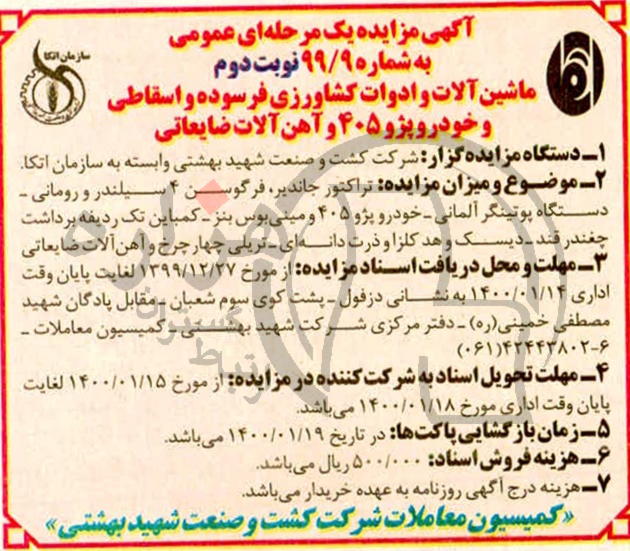 آگهی مزایده یک مرحله‌ای عمومی
به شماره ۹۹/۹ نوبت دوم
سازمان اتکا
ماشین آلات و ادوات کشاورزی فرسوده و اسقاطی
و خودرو پژو ۴۰۵ و آهن آلات ضایعاتی
۱ـ دستگاه مزایده گزار: شرکت کشت و صنعت شهید بهشتی وابسته به سازمان اتکا.
۲ـ موضوع و میزان مزایده: تراکتور جاندیر، فرگوسن ۴ سیلندر و رومانی ـ
دستگاه پوتینگر آلمانی ـ خودرو پژو ۴۰۵ و مینی‌بوس بنز ـ کمباین تک ردیفه برداشت
چغندر قند ـ دیسک و هد کلزا و ذرت دانه‌ای ـ تریلی چهار چرخ و آهن آلات ضایعاتی
۳ـ مهلت و محل دریافت اسناد مزایده: از مورخ ۱۳۹۹/۱۲/۲۷ لغایت پایان وقت
اداری ۱۴۰۰/۰۱/۱۴ به نشانی دزفول ـ پشت کوی سوم شعبان ـ مقابل پادگان شهید
مصطفی خمینی(ره) ـ دفتر مرکزی شرکت شهید بهشتی ـ کمیسیون معاملات ـ
۶-۴۲۴۴۳۸۰۲(۰۶۱)
۴ـ مهلت تحویل اسناد به شرکت کننده در مزایده: از مورخ ۱۴۰۰/۰۱/۱۵ لغایت
پایان وقت اداری مورخ ۱۴۰۰/۰۱/۱۸ می‌باشد.
۵ـ زمان بازگشایی پاکت‌ها: در تاریخ ۱۴۰۰/۰۱/۱۹ می‌باشد.
۶ـ هزینه فروش اسناد: ۵۰۰/۰۰۰ ریال می‌باشد.
۷ـ هزینه درج آگهی روزنامه به عهده خریدار می‌باشد.
«کمیسیون معاملات شرکت کشت و صنعت شهید بهشتی»
هزاره
گستران
ارتباط